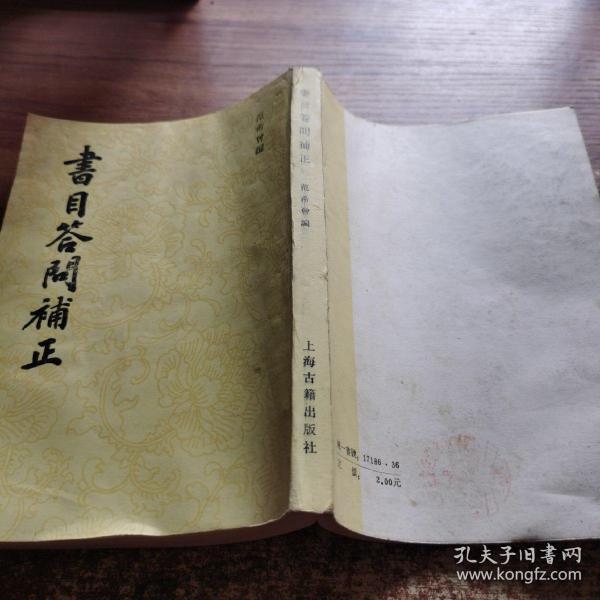 書目答問補正
范希曾編
書目答問補正
范希曾編
上海古籍出版社
統一書號：17186·36
定價：2.00元
孔夫子旧书网
www.kongfz.com